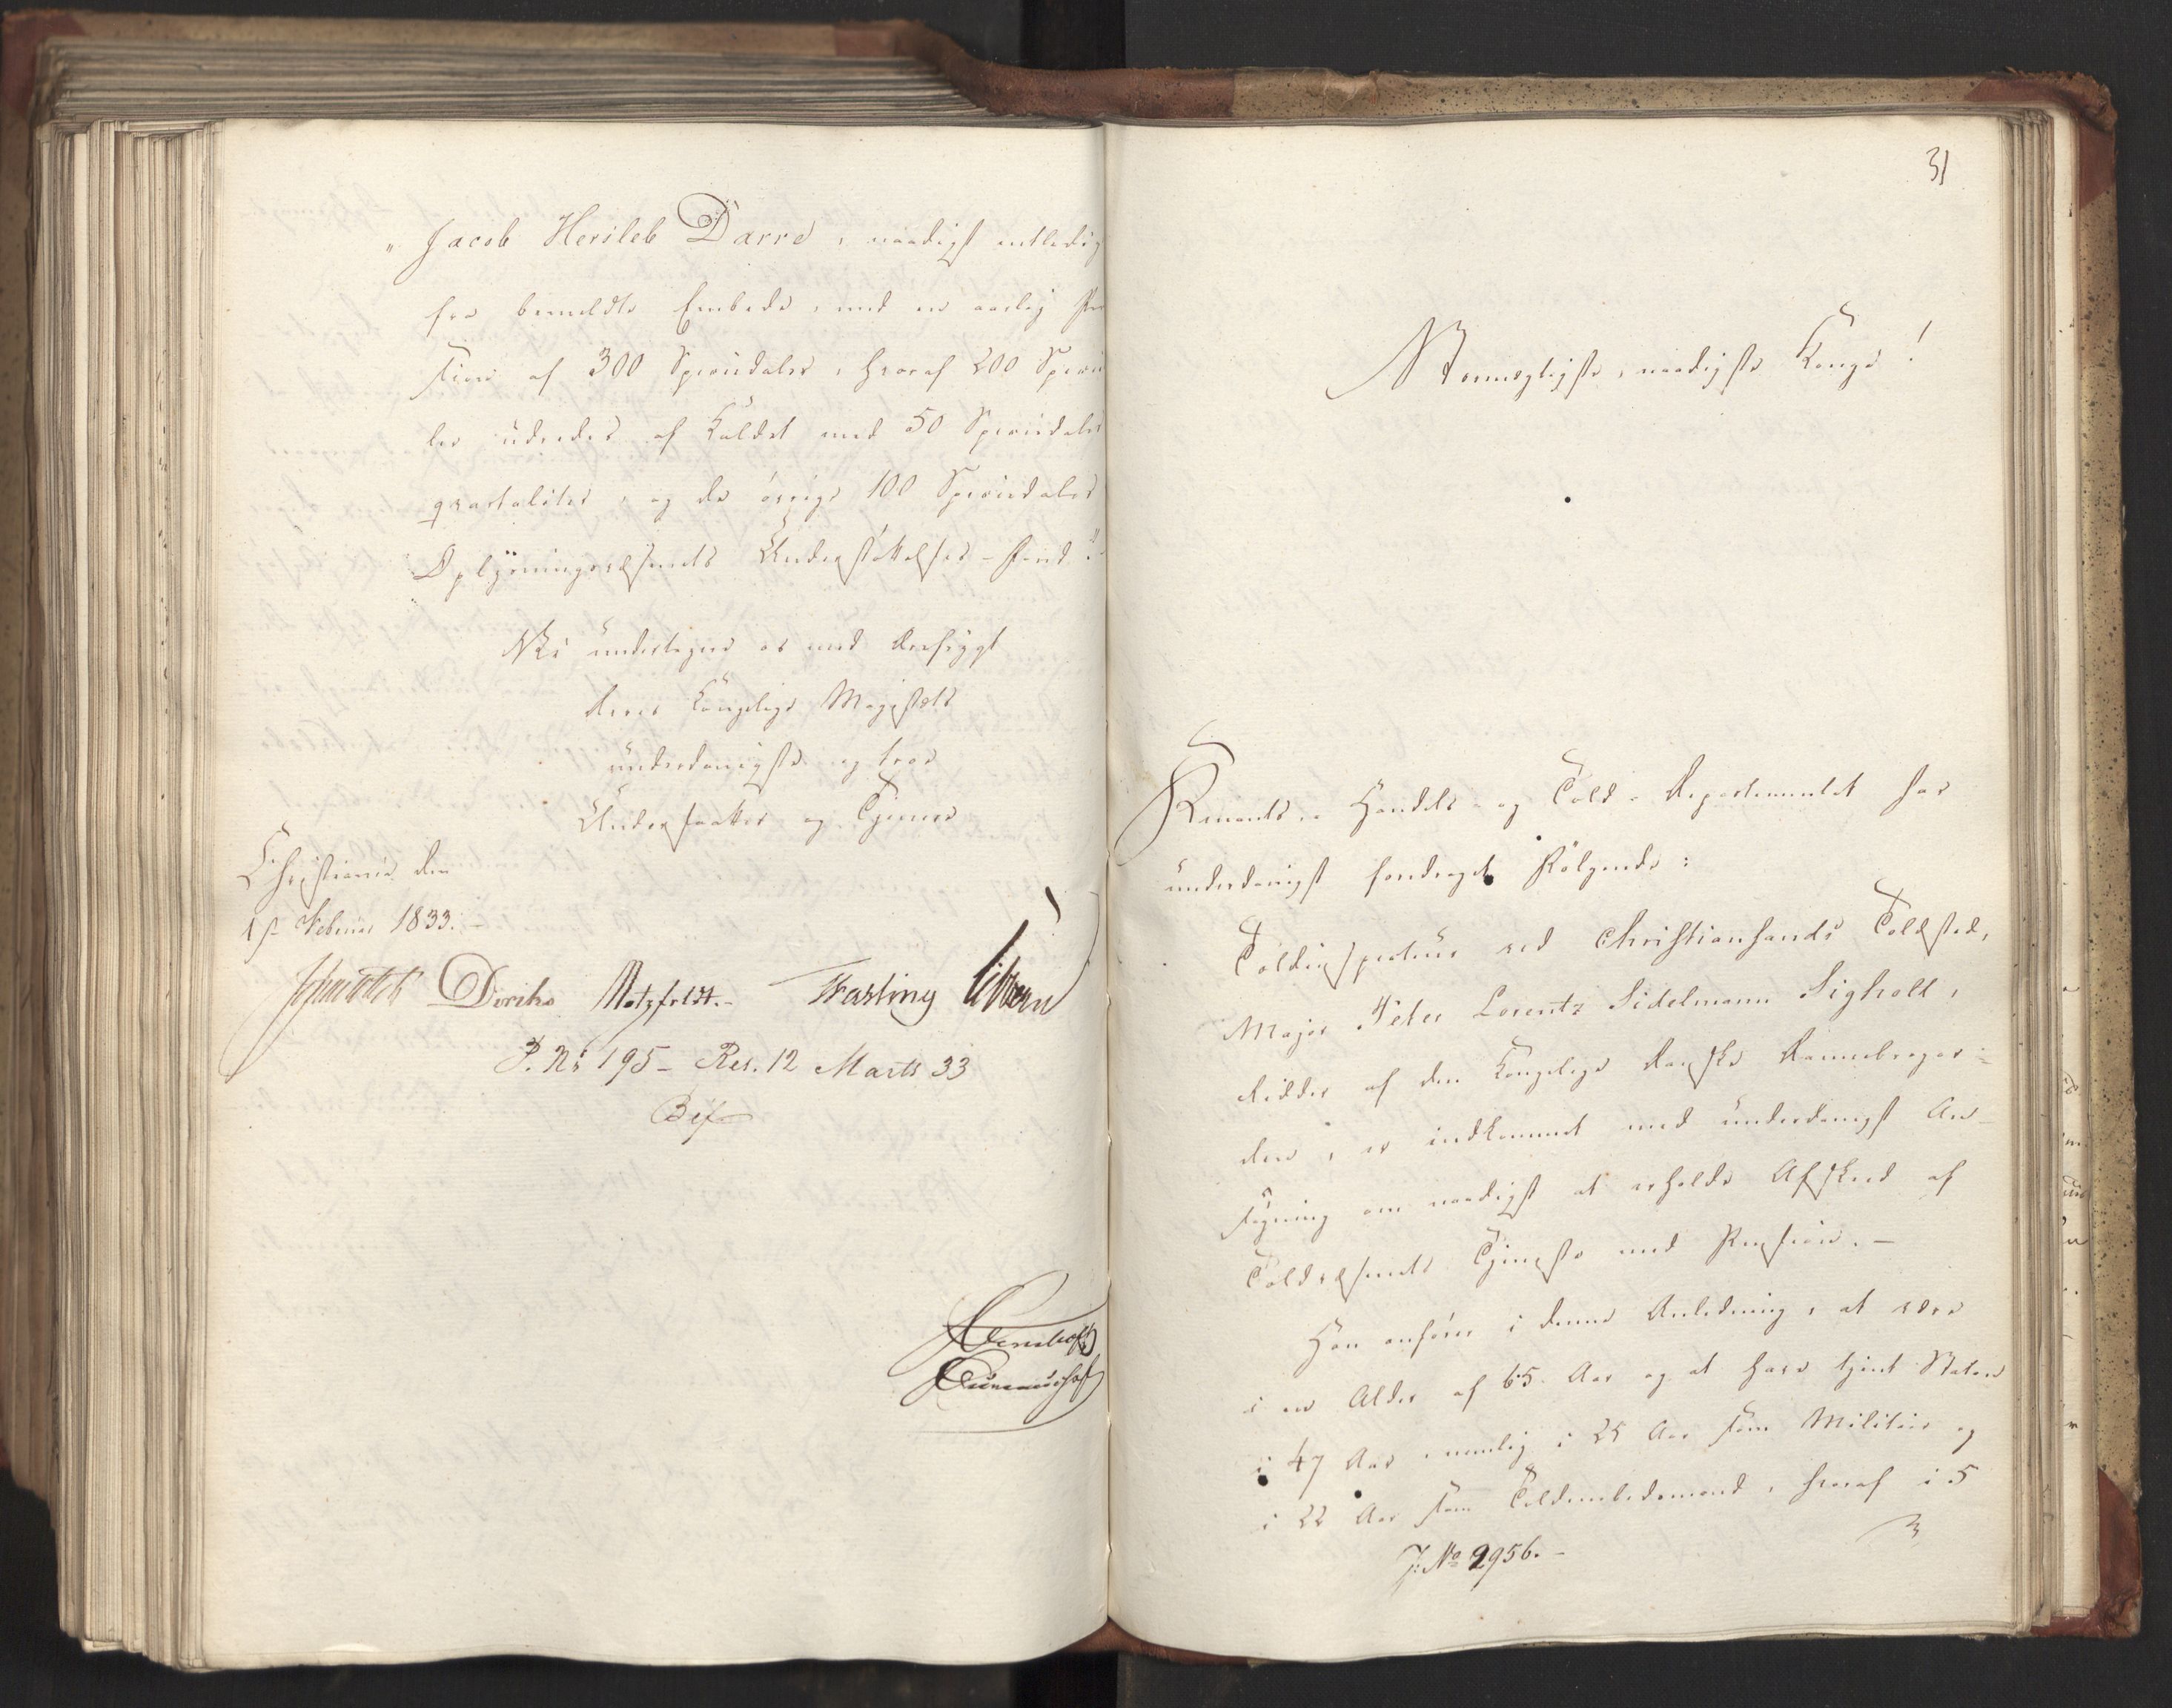 „Jacob Hersleb Darre, naadigst entledig
fra bemeldte Embede, med en aarlig Pen
sion af 300 Speciedaler, hvoraf 200 Specie
ler udredes af Kaldet med 50 Speciedaler
qvartaliter, og de övrige 100 Speciedaler
Oplysningsvæsenets Understöttelses-Fond“.
Vi undertegne os med Dersygt
Deres Kongelige Majestæts
underdanigste og troe
Undersaatter og Tjenere
Christiania den
1ste Februar 1833.
Diriks Motzfeldt.- Fasting Sibbern
P. No 195 - Res. 12 Marts 33
31
Stormægtigste, naadigste Konge!
Finants-, Handels- og Told-Departementet har
underdanigst foredraget Fölgende:
Toldinspecteur ved Christiansands Toldsted,
Major Peter Lorentz Sidelmann Sigholt,
Ridder af den Kongelige Danske Dannebroges-
den, er indkommet med underdanigst An-
sögning om naadigst at erholde Afskeed af
Toldvæsenets Tjeneste med Pension.-
Han anförer i denne Anledning, at være
i en Alder af 65 Aar og at have tjent Staten
i 47 Aar, nemlig i 25 Aar som Militair og
i 22 Aar som Toldembedsmand, hvoraf i 5
J: No 2956.-